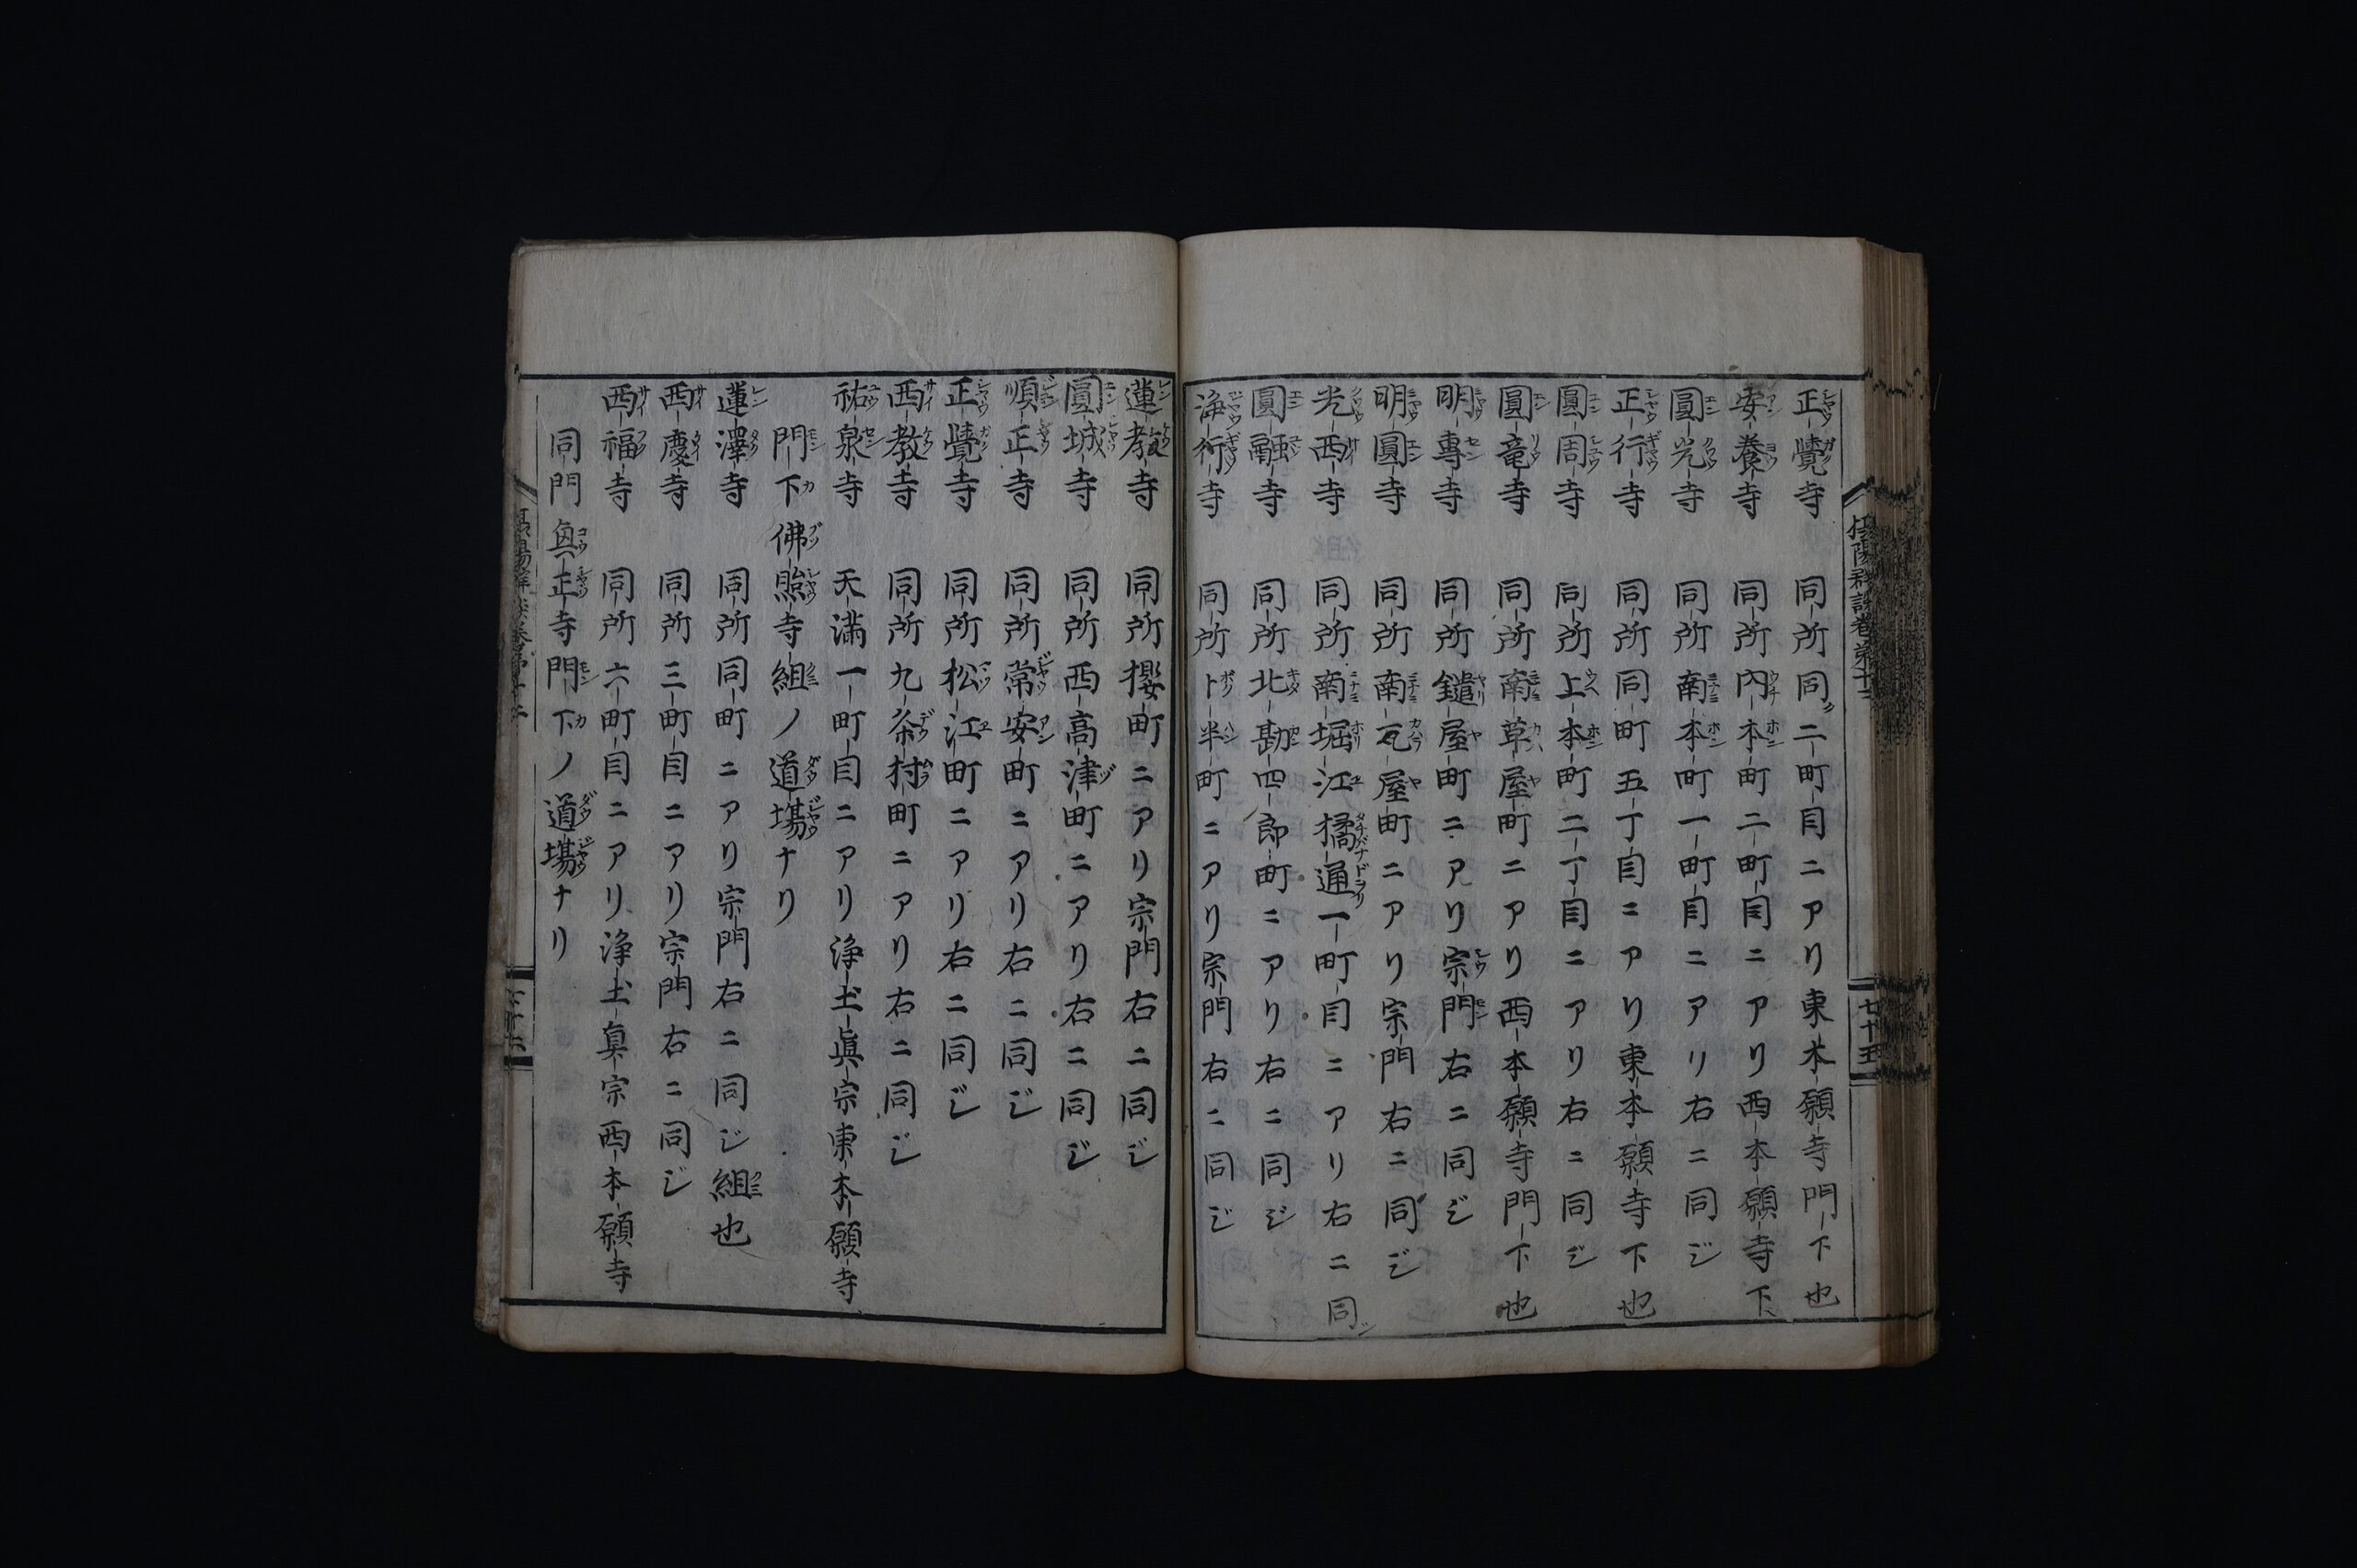 正覺寺 同所同二町目ニアリ東本願寺門下也
安養寺 同所内本町二町目ニアリ西本願寺下
圓光寺 同所南本町一町目ニアリ右ニ同ジ
正行寺 同所同町五丁目ニアリ東本願寺下也
圓周寺 同所上本町二丁目ニアリ右ニ同ジ
圓竜寺 同所南草屋町ニアリ西本願寺門下也
明專寺 同所鑓屋町ニアリ宗門右ニ同ジ
明圓寺 同所南瓦屋町ニアリ宗門右ニ同ジ
光西寺 同所南堀江橘通一町目ニアリ右ニ同ジ
圓融寺 同所北勘四郎町ニアリ右ニ同ジ
淨行寺 同所卜半町ニアリ宗門右ニ同ジ
攝陽群談卷第十三
七十五
蓮教寺 同所櫻町ニアリ宗門右ニ同ジ
圓城寺 同所西高津町ニアリ右ニ同ジ
順正寺 同所常安町ニアリ右ニ同ジ
正覺寺 同所松江町ニアリ右ニ同ジ
西教寺 同所九条村町ニアリ右ニ同ジ
祐泉寺 天満一町目ニアリ浄土眞宗東本願寺
門下佛照寺組ノ道場ナリ
蓮澤寺 同所同町ニアリ宗門右ニ同ジ組也
西慶寺 同所三町目ニアリ宗門右ニ同ジ
西福寺 同所六町目ニアリ浄土眞宗西本願寺
同門興正寺門下ノ道場ナリ